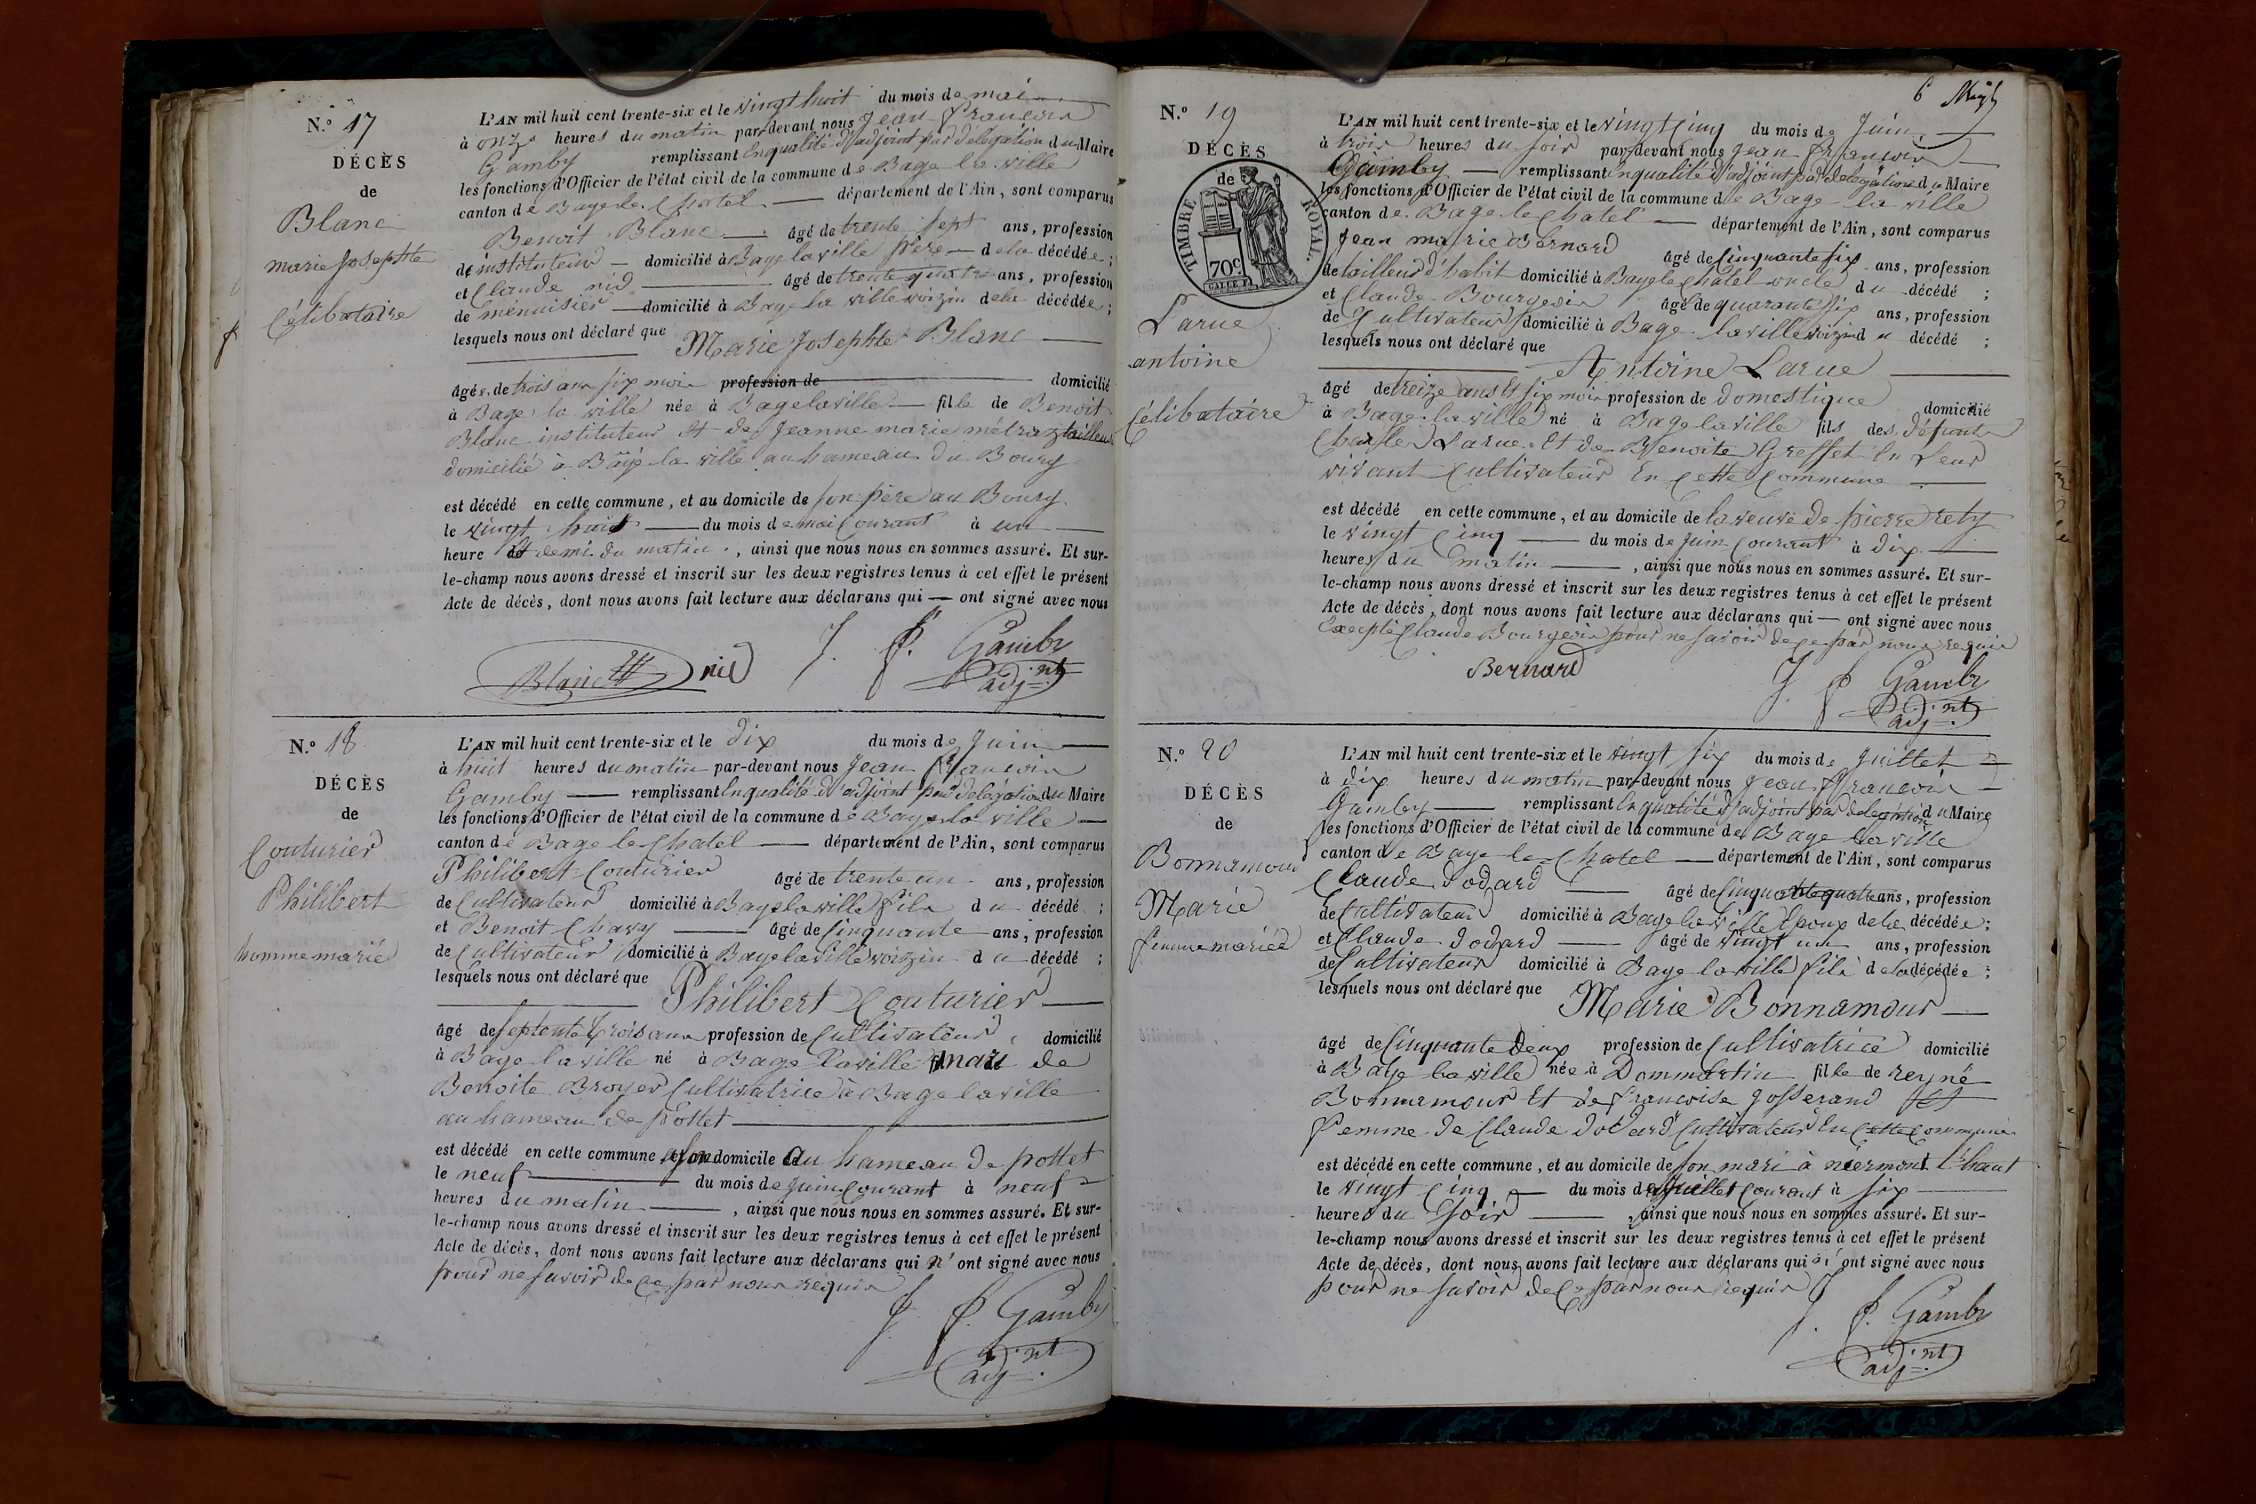 N.º 17
DÉCÈS
de
Blanc
marie Josephte
Célibataire
L'AN mil huit cent trente-six et le vingt huit du mois de mai
à onze heures du matin par-devant nous Jean François
Gamby remplissant en qualité d'adjoint par délégation du Maire
les fonctions d'Officier de l'état civil de la commune de Bage la ville
canton de Bage le Chatel département de l'Ain, sont comparus
Benoit Blanc âgé de trente sept ans, profession
de instituteur domicilié à Bage la ville père de la décédée ;
et Claude nid âgé de trente quatre ans, profession
de menuisier domicilié à Bage la ville voizin de la décédée ;
lesquels nous ont déclaré que Marie Josephte Blanc
âgée de trois ans six mois profession de domicilié
à Bage la ville née à Bage la ville fille de Benoit
Blanc instituteur et de Jeanne marie métraz tailleuse
domicilié à Bagé la ville au hameau du Bourg
est décédé en cette commune, et au domicile de son père au Bourg
le vingt huit du mois de mai Courant à un
heure et demi du matin, ainsi que nous nous en sommes assuré. Et sur-
le-champ nous avons dressé et inscrit sur les deux registres tenus à cet effet le présent
Acte de décès, dont nous avons fait lecture aux déclarans qui ont signé avec nous
Blanc nid J. f. Gamby
adj.nt
N.º 18
DÉCÈS
de
Couturier
Philibert
homme marié
L'AN mil huit cent trente-six et le dix du mois de Juin
à huit heures du matin par-devant nous Jean François
Gamby remplissant en qualité d'adjoint par délégation du Maire
les fonctions d'Officier de l'état civil de la commune de Bage la ville
canton de Bage le Chatel département de l'Ain, sont comparus
Philibert Couturier âgé de trente un ans, profession
de Cultivateur domicilié à Bage la ville fils du décédé ;
et Benoit Chavy âgé de Cinquante ans, profession
de Cultivateur domicilié à Bage la ville voizin du décédé ;
lesquels nous ont déclaré que Philibert Couturier
âgé de septente trois ans profession de Cultivateur, domicilié
à Bage la ville né à Bage la ville mari de
Benoite Broyer Cultivatrice à Bage la ville
au hameau de pottet
est décédé en cette commune à son domicile au hameau de pottet
le neuf du mois de Juin Courant à neuf
heures du matin, ainsi que nous nous en sommes assuré. Et sur-
le-champ nous avons dressé et inscrit sur les deux registres tenus à cet effet le présent
Acte de décès, dont nous avons fait lecture aux déclarans qui n'ont signé avec nous
pour ne savoir de ce par nous requis
J. f. Gamby
adj.nt
6
N.º 19
DÉCÈS
de
TIMBRE ROYAL
70c
Larue
antoine
Célibataire
L'AN mil huit cent trente-six et le vingt Cinq du mois de Juin
à trois heures du soir par-devant nous Jean François
Gamby remplissant en qualité d'adjoint par délégation du Maire
les fonctions d'Officier de l'état civil de la commune de Bage la ville
canton de Bage le Chatel département de l'Ain, sont comparus
Jean marie Bernard âgé de Cinquante six ans, profession
de tailleur d'habit domicilié à Bage le Chatel oncle du décédé ;
et Claude Bourgeois âgé de quarante six ans, profession
de Cultivateur domicilié à Bage la ville voizin du décédé ;
lesquels nous ont déclaré que Antoine Larue
âgé de treize ans et six mois profession de domestique domicilié
à Bage la ville né à Bage la ville fils des défunts
Charles Larue et de Benoite Greffet en Leur
vivant Cultivateur En Cette Commune
est décédé en cette commune, et au domicile de la veuve de pierre rety
le vingt Cinq du mois de Juin Courant à dix
heures du matin, ainsi que nous nous en sommes assuré. Et sur-
le-champ nous avons dressé et inscrit sur les deux registres tenus à cet effet le présent
Acte de décès, dont nous avons fait lecture aux déclarans qui ont signé avec nous
Excepté Claude Bourgeois pour ne savoir de ce par nous requis
Bernard J. f. Gamby
adj.nt
N.º 20
DÉCÈS
de
Bonnamour
Marie
femme mariée
L'AN mil huit cent trente-six et le vingt six du mois de Juillet
à dix heures du matin par-devant nous Jean François
Gamby remplissant en qualité d'adjoint par délégation du Maire
les fonctions d'Officier de l'état civil de la commune de Bage la ville
canton de Bage le Chatel département de l'Ain, sont comparus
Claude dodard âgé de Cinquante quatre ans, profession
de Cultivateur domicilié à Bage la ville Epoux de la décédée ;
et Claude dodard âgé de vingt un ans, profession
de Cultivateur domicilié à Bage la ville fils de la décédée ;
lesquels nous ont déclaré que Marie Bonnamour
âgé de Cinquante deux profession de Cultivatrice domicilié
à Bage la ville née à Dommartin fille de reyné
Bonnamour Et de françoise Josserand
femme de Claude dodard Cultivateur En Cette Commune
est décédé en cette commune, et au domicile de son mari à niermont l'haut
le vingt Cinq du mois de Juillet Courant à six
heures du soir, ainsi que nous nous en sommes assuré. Et sur-
le-champ nous avons dressé et inscrit sur les deux registres tenus à cet effet le présent
Acte de décès, dont nous avons fait lecture aux déclarans qui n'ont signé avec nous
pour ne savoir de Ce par nous requis
J. f. Gamby
adj.nt